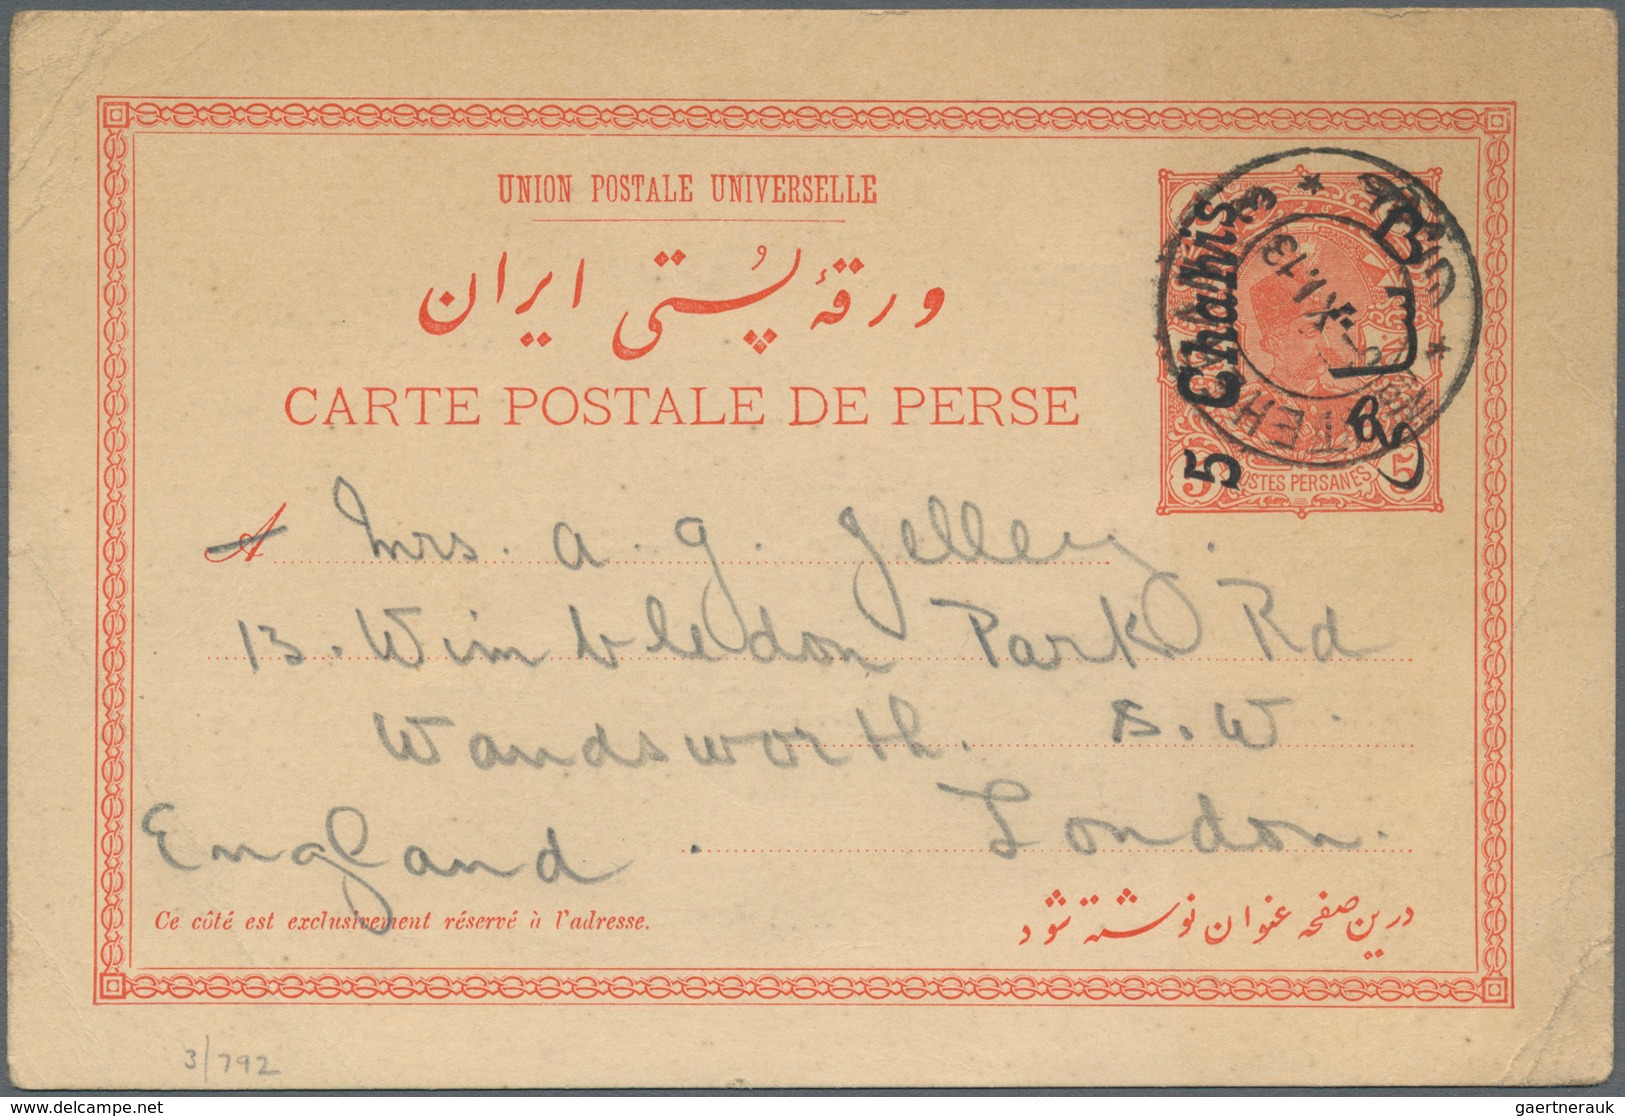 UNION POSTALE UNIVERSELLE
ورقهٔ پُستی ایران
CARTE POSTALE DE PERSE
5 Chahis
TEHERAN
13
POSTES PERSANES
5 5
A Mrs. A. G. Jelley.
13. Wimbledon Park Rd
Wandsworth. S.W.
London.
England.
Ce côté est exclusivement réservé à l'adresse.
درین صفحه عنوان نوشته شود
3/792
gaertnerauk
delcampe.net